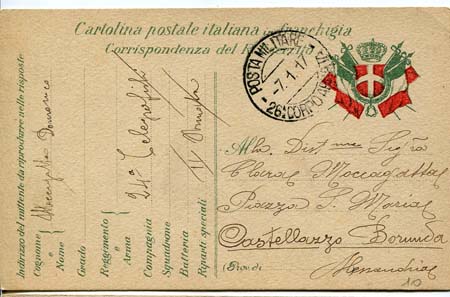 Cartolina postale italiana in franchigia
Corrispondenza del
POSTA MILITARE
-7.1.17
-26º CORPO
Indirizzo del mittente da riprodurre nelle risposte
Cognome e Nome
Domenico
Grado
Reggimento o Arma
24ª Telegrafisti
Compagnia
Squadrone
Batteria
Riparti speciali
Alla Dist.ma Sig.ra
Clara Moccagatta
Piazza S. Maria
Castellazzo Bormida
(Prov. di
Alessandria
10